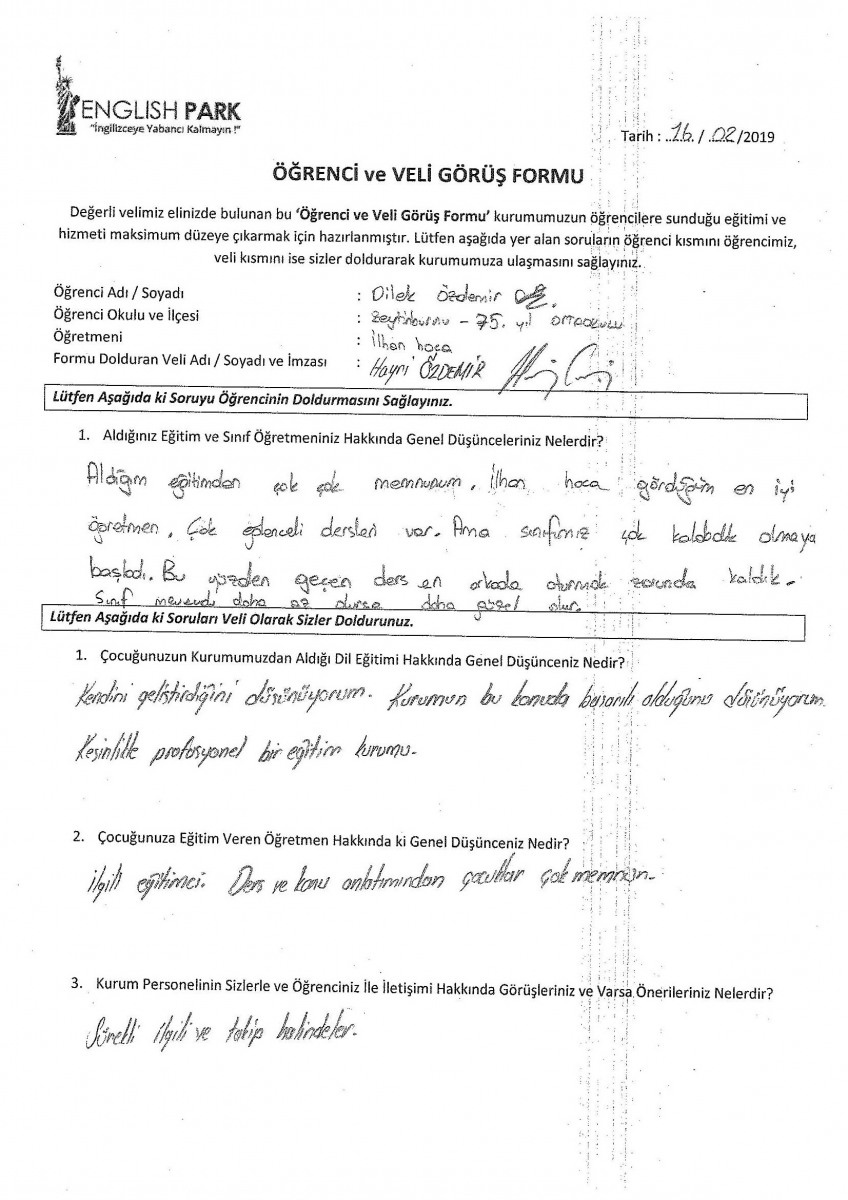 ENGLISH PARK
"İngilizceye Yabancı Kalmayın !"
Tarih : ..16. / ..02/2019
ÖĞRENCİ ve VELİ GÖRÜŞ FORMU
Değerli velimiz elinizde bulunan bu 'Öğrenci ve Veli Görüş Formu' kurumumuzun öğrencilere sunduğu eğitimi ve
hizmeti maksimum düzeye çıkarmak için hazırlanmıştır. Lütfen aşağıda yer alan soruların öğrenci kısmını öğrencimiz,
veli kısmını ise sizler doldurarak kurumumuza ulaşmasını sağlayınız.
Öğrenci Adı / Soyadı : Dilek Özdemir
Öğrenci Okulu ve İlçesi : Zeytinburnu - 75. yıl ortaokulu
Öğretmeni : İlhan hoca
Formu Dolduran Veli Adı / Soyadı ve İmzası : Hayri ÖZDEMİR
Lütfen Aşağıda ki Soruyu Öğrencinin Doldurmasını Sağlayınız.
1. Aldığınız Eğitim ve Sınıf Öğretmeniniz Hakkında Genel Düşünceleriniz Nelerdir?
Aldığım eğitimden çok çok memnunum. İlhan hoca gördüğüm en iyi
öğretmen. Çok eğlenceli dersleri var. Ama sınıfımız çok kalabalık olmaya
başladı. Bu yüzden geçen ders en arkada oturmak zorunda kaldık.
Sınıf mevcudu daha az olursa daha güzel olur.
Lütfen Aşağıda ki Soruları Veli Olarak Sizler Doldurunuz.
1. Çocuğunuzun Kurumumuzdan Aldığı Dil Eğitimi Hakkında Genel Düşünceniz Nedir?
Kendini geliştirdiğini düşünüyorum. Kurumun bu konuda başarılı olduğunu düşünüyorum.
Kesinlikle profosyonel bir eğitim kurumu.
2. Çocuğunuza Eğitim Veren Öğretmen Hakkında ki Genel Düşünceniz Nedir?
İlgili eğitimci. Ders ve konu anlatımından çocuklar çok memnun.
3. Kurum Personelinin Sizlerle ve Öğrenciniz İle İletişimi Hakkında Görüşleriniz ve Varsa Önerileriniz Nelerdir?
Sürekli ilgili ve takip halindeler.